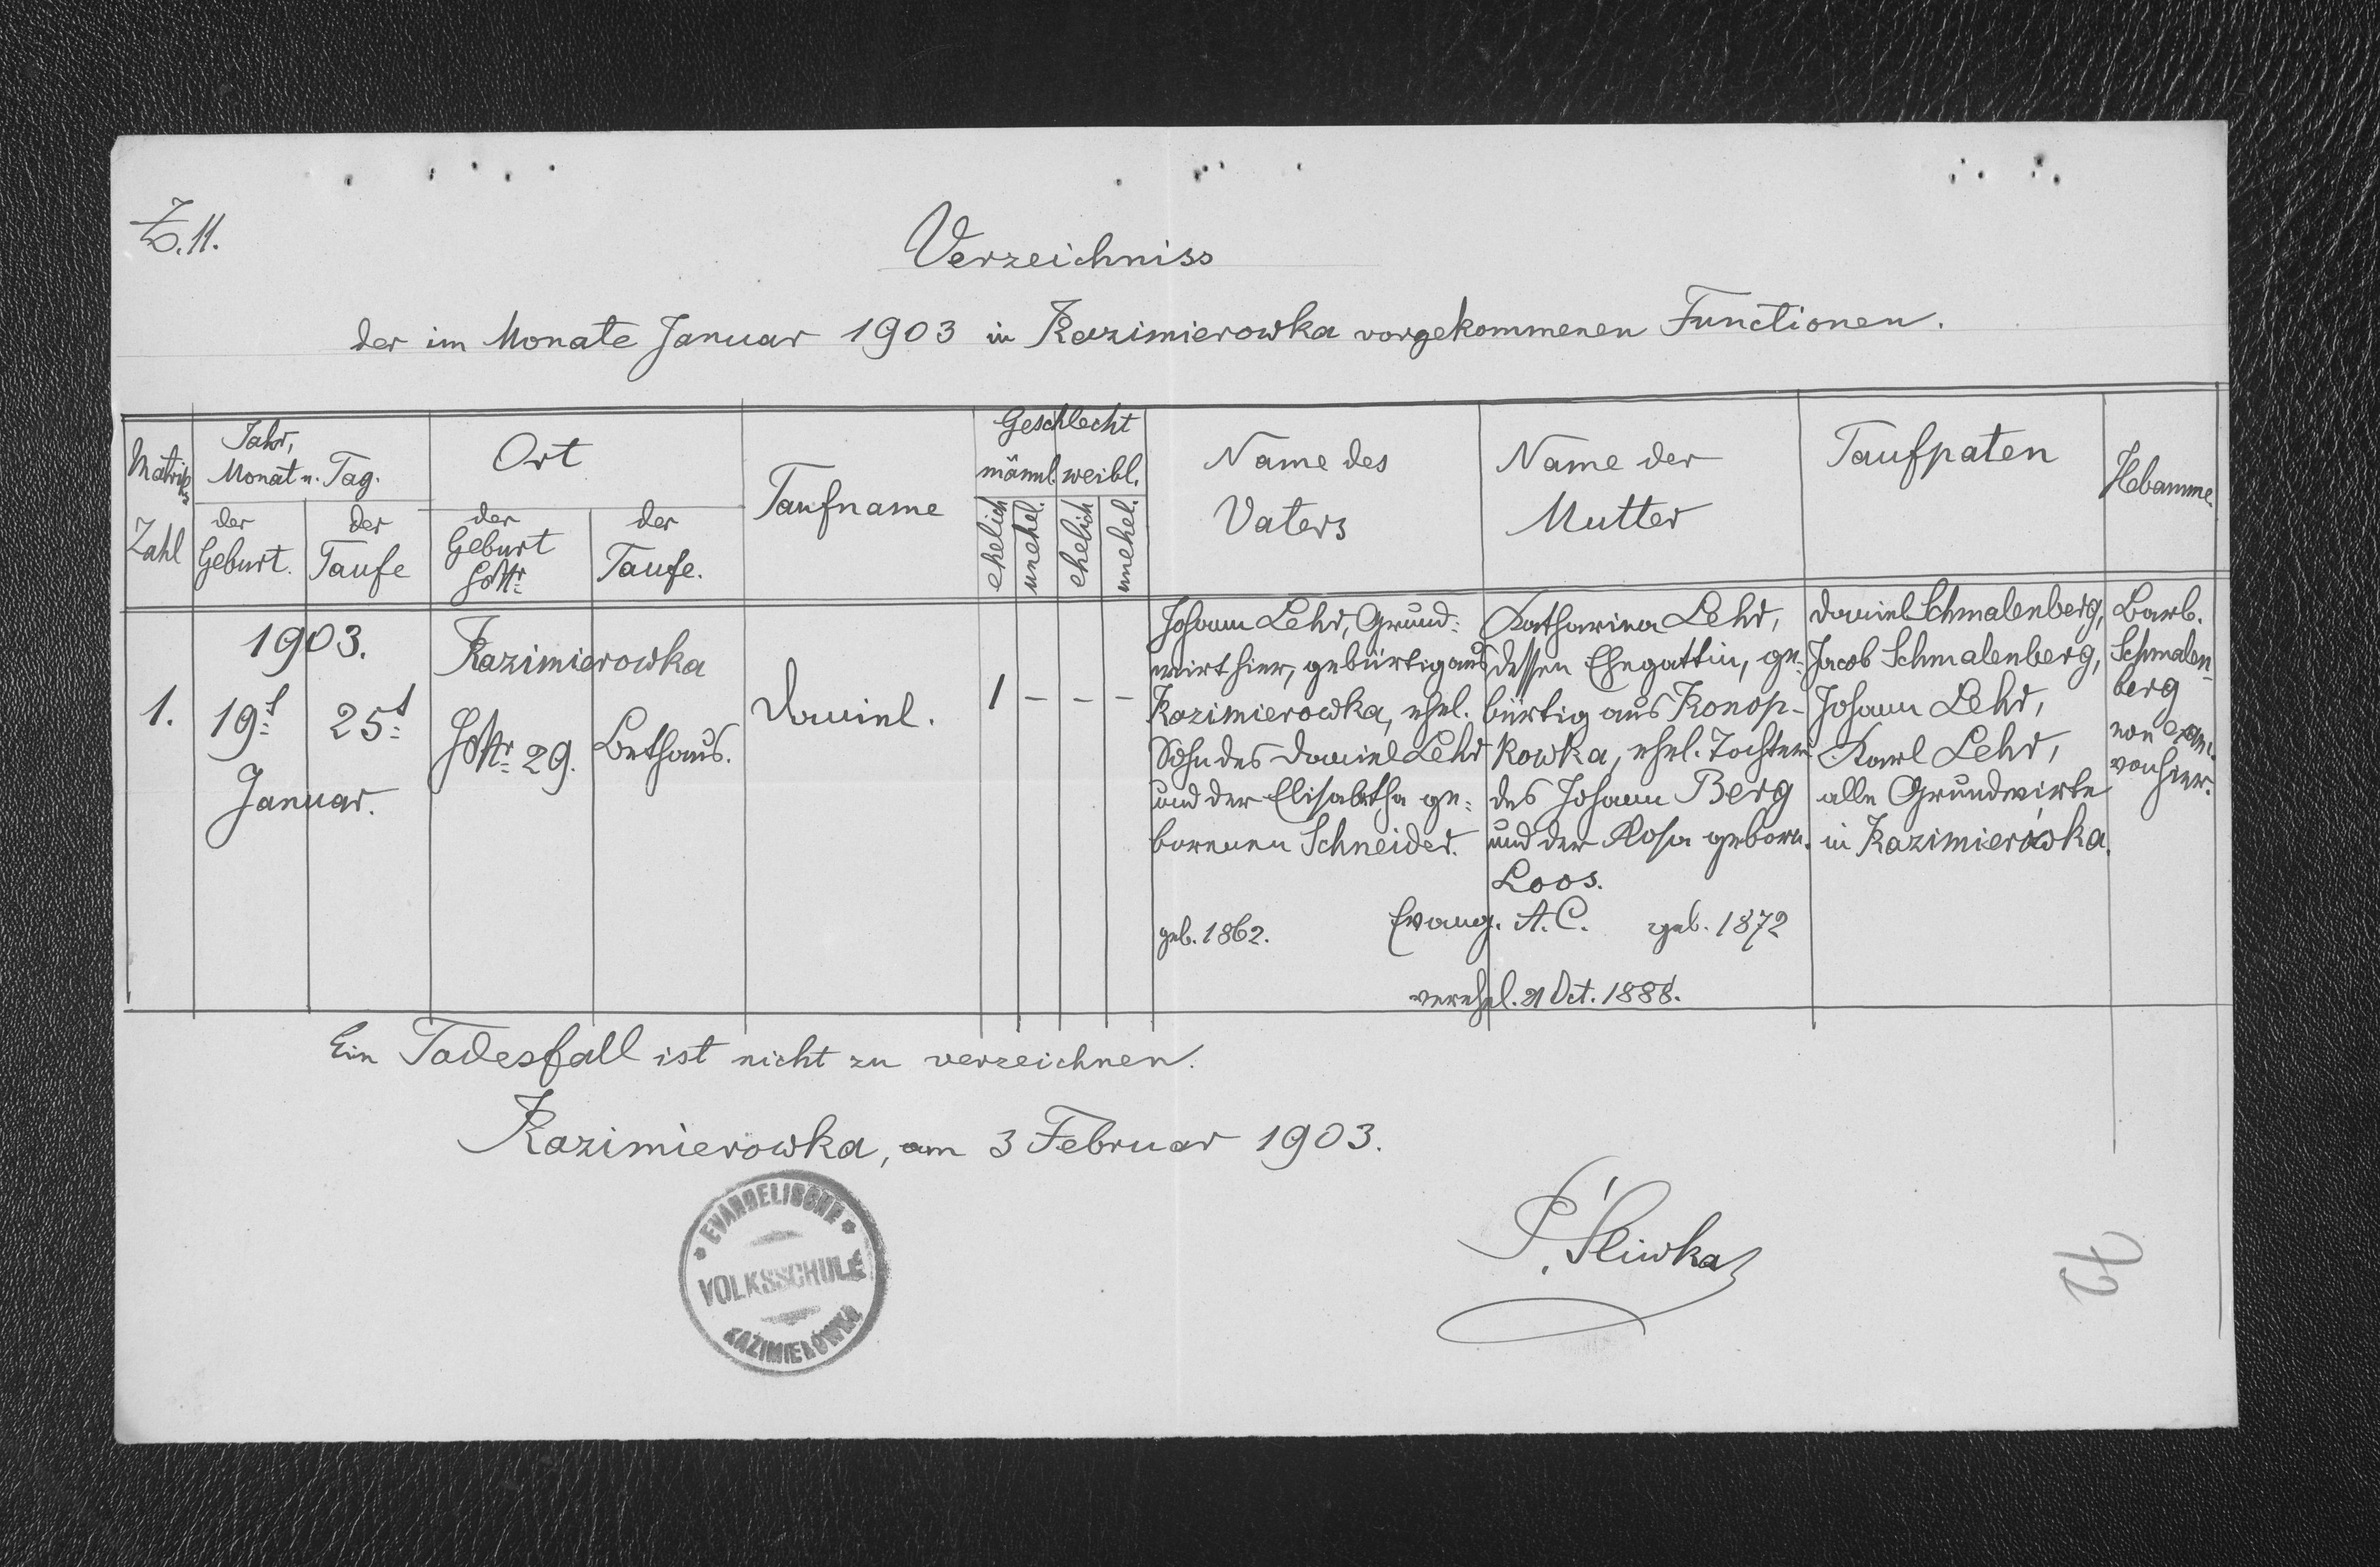 Z. 11.
Verzeichniss
der im Monate Januar 1903 in Kazimierowka vorgekommenen Functionen.
Matrik-Zahl
Jahr, Monat u. Tag.
der Geburt.
der Taufe
Ort
der Geburt HsNr
der Taufe.
Taufname
Geschlecht
männl. weibl.
ehelich
unehel.
ehelich
unehel.
Name des
Vaters
Name der
Mutter
Taufpaten
Hebamme
1.
1903.
19t 25t
Januar.
Kazimierowka
HsNr 29.
Bethaus.
Daniel.
1 - - -
Johann Lehr, Grund-
wirt hier, gebürtig aus
Kazimierowka, ehel.
Sohn des Daniel Lehr
und der Elisabetha ge-
borenen Schneider.
geb. 1862.
Katharina Lehr,
dessen Ehegattin, ge-
bürtig aus Konop-
kowka, ehel. Tochter
des Johann Berg
und der Rosa geborn.
Loos.
Evang. A. C. geb. 1872
verehel. 21 Oct. 1888.
Daniel Schmalenberg,
Jacob Schmalenberg,
Johann Lehr,
Karl Lehr,
alle Grundwirte
in Kazimierówka.
Barb.
Schmalen-
berg
von hier.
Ein Todesfall ist nicht zu verzeichnen.
Kazimierowka, am 3 Februar 1903.
* EVANGELISCHE *
VOLKSSCHULE
KAZIMIERÓWKA
P. Śliwka